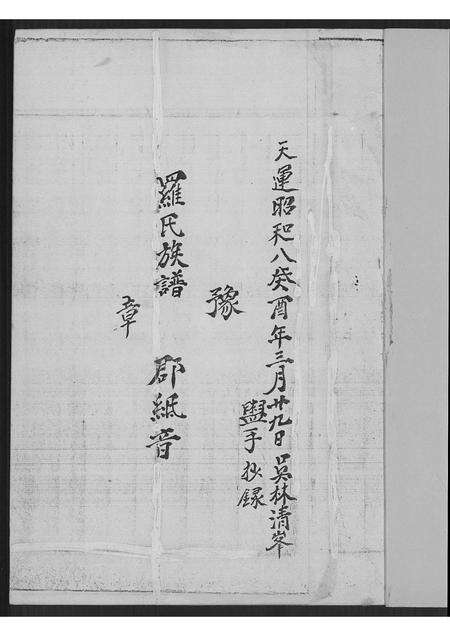 天運昭和八癸酉年三月廿九日吳林清岑
盥手抄録
豫
羅氏族譜 郡紙音
章